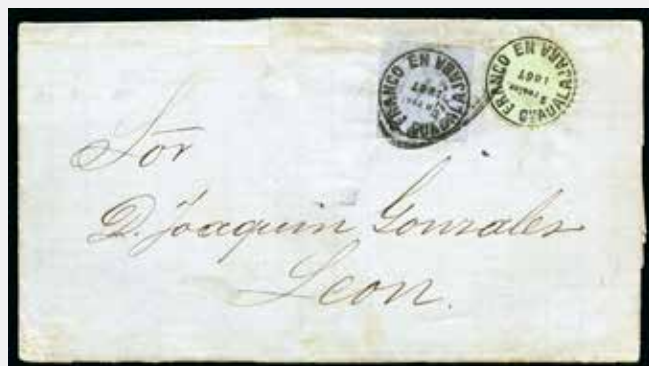 FRANCO EN GUADALAJARA
1867
FRANCO EN GUADALAJARA
1867
Sor
D. Joaquin Gonzales
Leon.